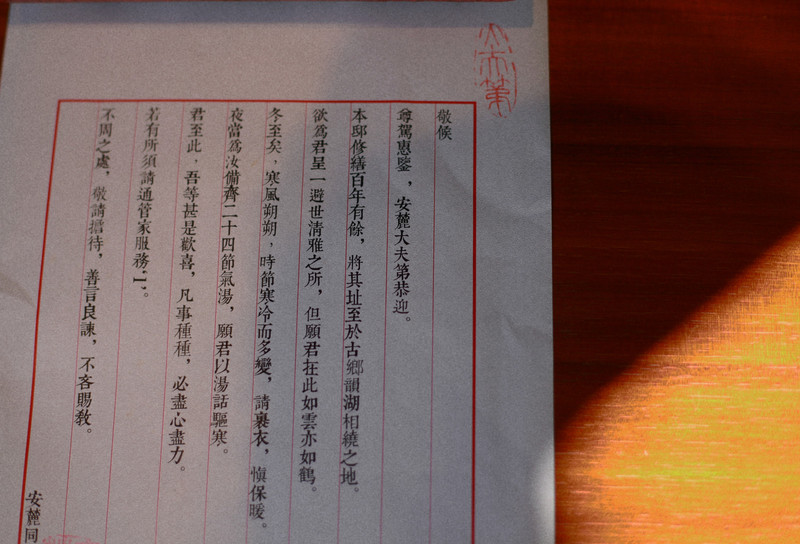 敬候
尊駕惠鑒，安麓大夫第恭迎。
本邸修繕百年有餘，將其址至於古鄉韻湖相繞之地。
欲爲君呈一避世清雅之所，但願君在此如雲亦如鶴。
冬至矣，寒風朔朔，時節寒冷而多變，請裹衣，慎保暖。
夜當爲汝備齊二十四節氣湯，願君以湯話驅寒。
君至此，吾等甚是歡喜，凡事種種，必盡心盡力。
若有所須請通管家服務'1'。
不周之處，敬請擔待，善言良諫，不吝賜教。
安麓同
大夫第